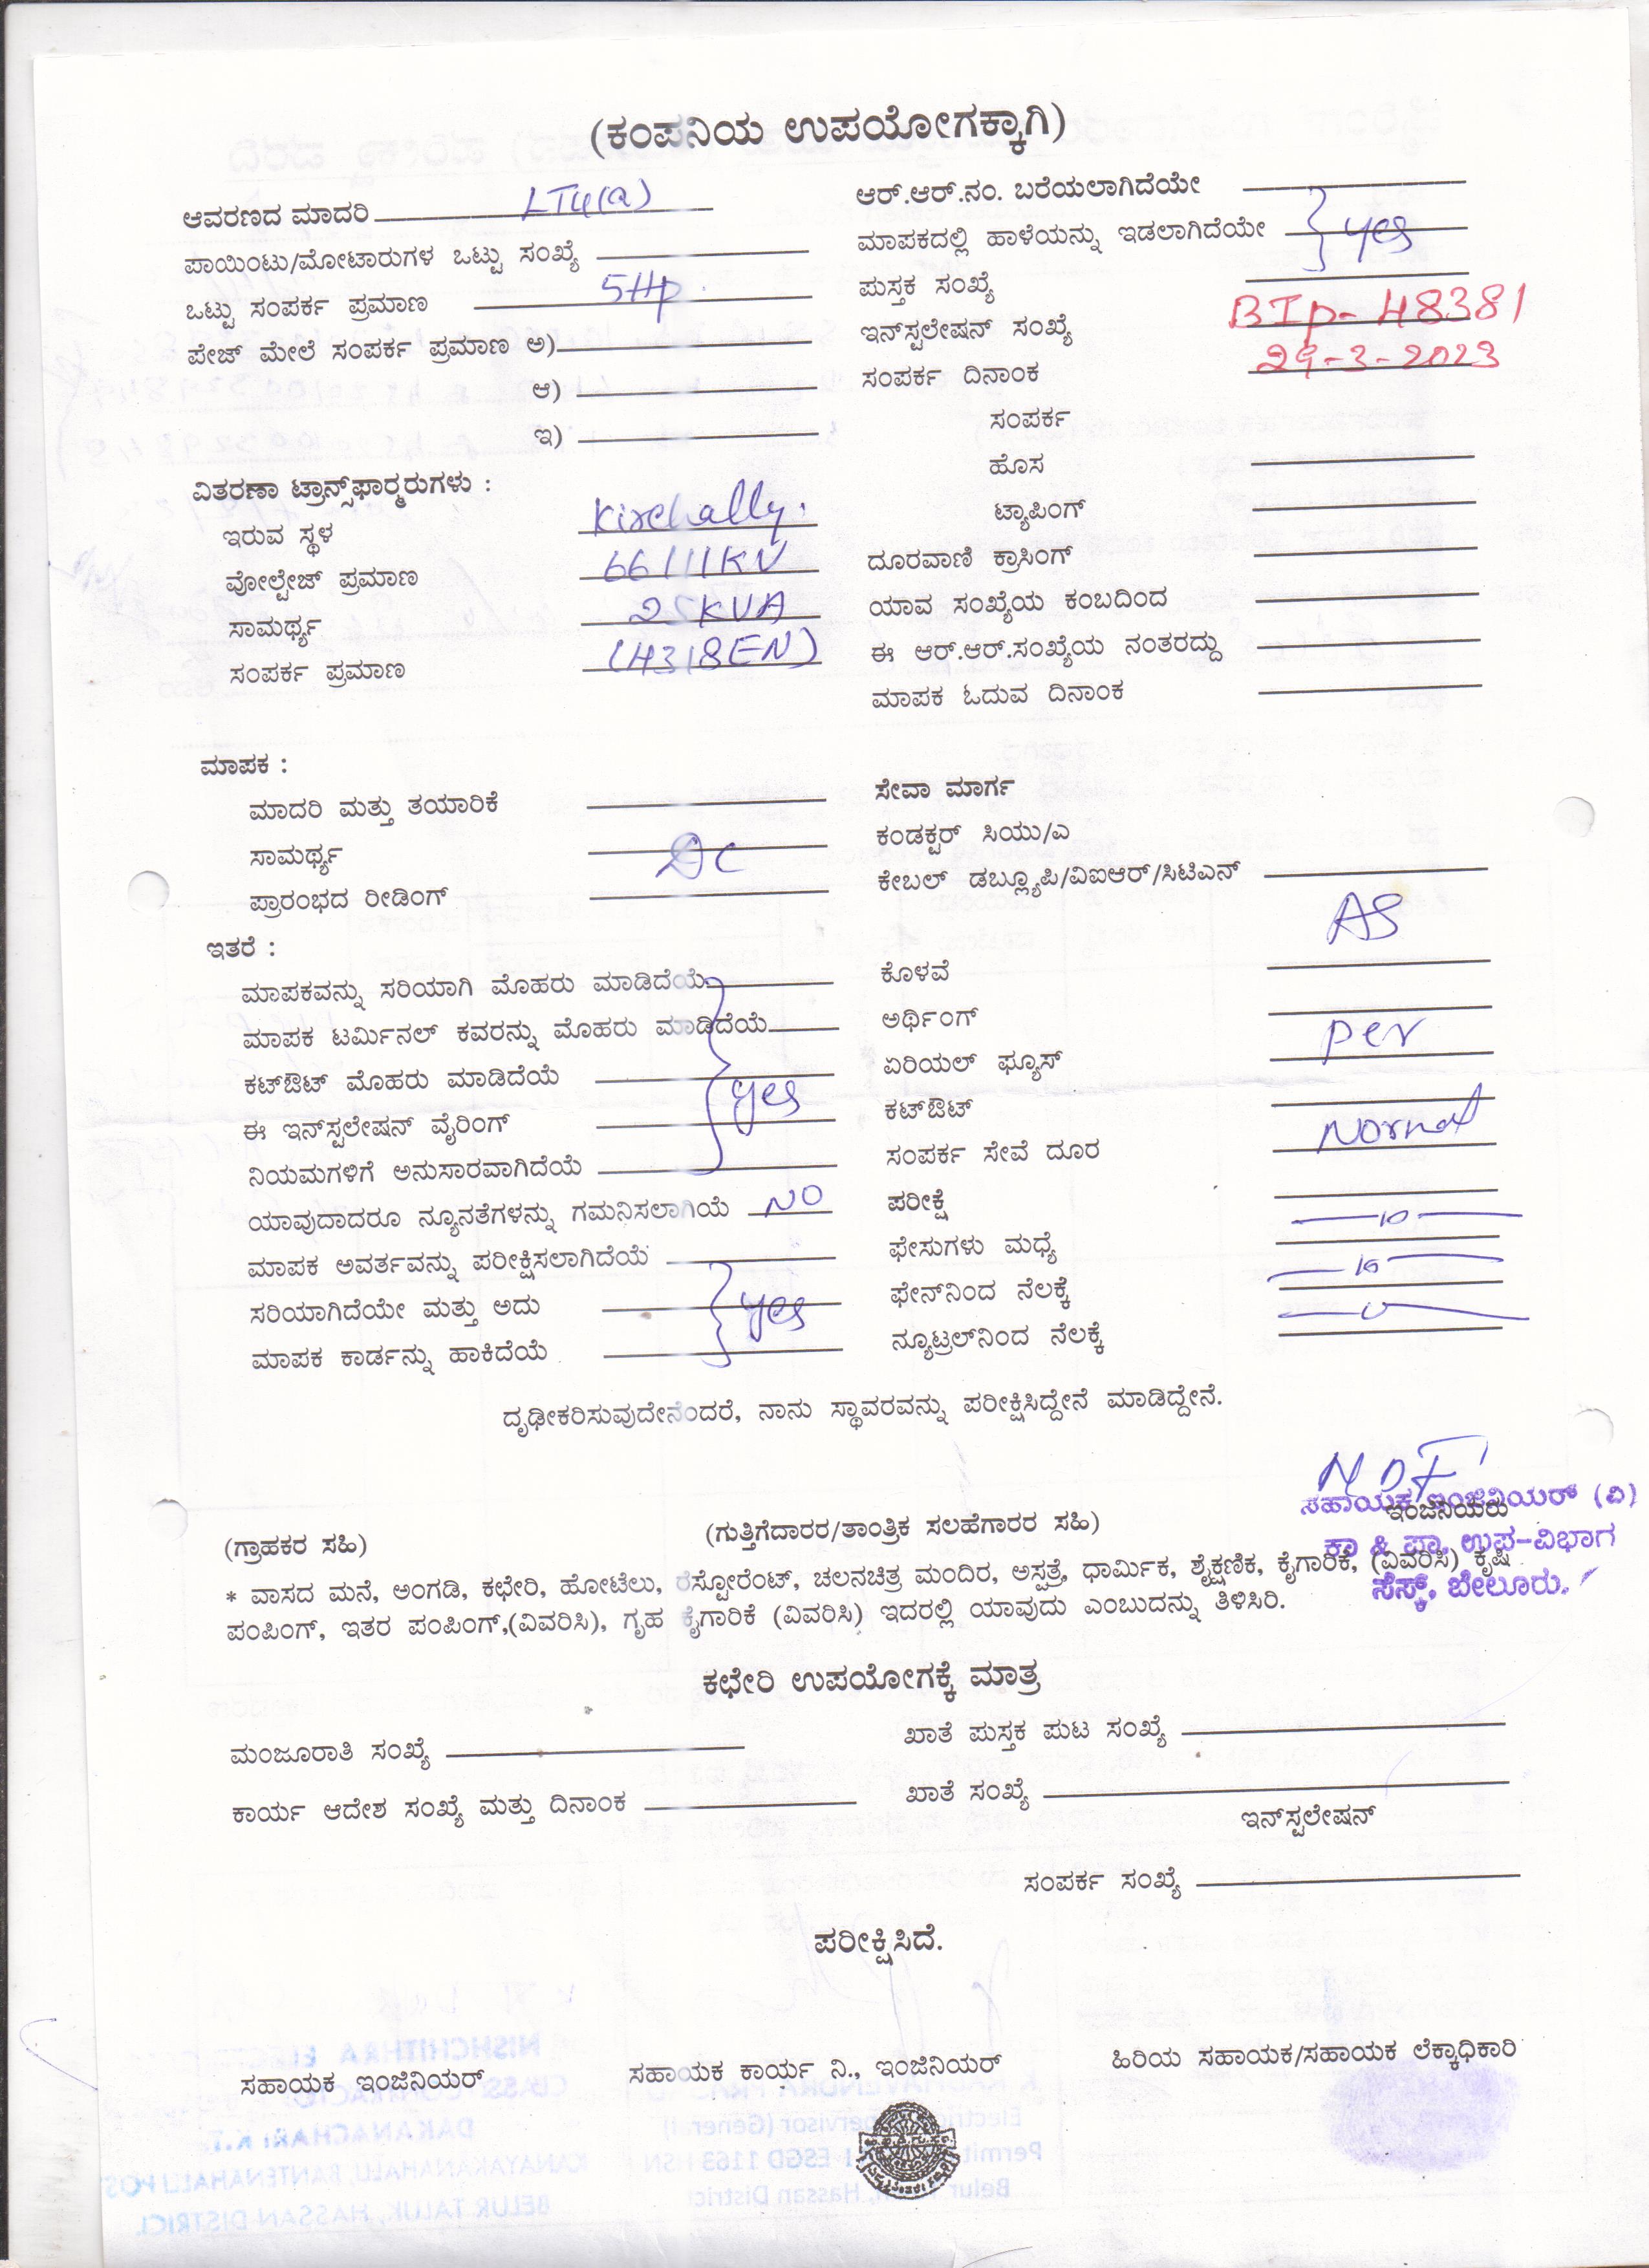 (ಕಂಪನಿಯ ಉಪಯೋಗಕ್ಕಾಗಿ)
ಆವರಣದ ಮಾದರಿ LT4(a)
ಪಾಯಿಂಟು/ಮೋಟಾರುಗಳ ಒಟ್ಟು ಸಂಖ್ಯೆ
ಒಟ್ಟು ಸಂಪರ್ಕ ಪ್ರಮಾಣ 5Hp.
ಪೇಜ್ ಮೇಲೆ ಸಂಪರ್ಕ ಪ್ರಮಾಣ ಅ)
ಆ)
ಇ)
ಆರ್.ಆರ್.ನಂ. ಬರೆಯಲಾಗಿದೆಯೇ
ಮಾಪಕದಲ್ಲಿ ಹಾಳೆಯನ್ನು ಇಡಲಾಗಿದೆಯೇ yes
ಪುಸ್ತಕ ಸಂಖ್ಯೆ
ಇನ್‌ಸ್ಟಲೇಷನ್ ಸಂಖ್ಯೆ BIP-48381
ಸಂಪರ್ಕ ದಿನಾಂಕ 29-3-2023
ಸಂಪರ್ಕ
ಹೊಸ
ಟ್ಯಾಪಿಂಗ್
ದೂರವಾಣಿ ಕ್ರಾಸಿಂಗ್
ಯಾವ ಸಂಖ್ಯೆಯ ಕಂಬದಿಂದ
ಈ ಆರ್.ಆರ್.ಸಂಖ್ಯೆಯ ನಂತರದ್ದು
ಮಾಪಕ ಓದುವ ದಿನಾಂಕ
ವಿತರಣಾ ಟ್ರಾನ್ಸ್‌ಫಾರ್‍ಮರುಗಳು :
ಇರುವ ಸ್ಥಳ
ವೋಲ್ಟೇಜ್ ಪ್ರಮಾಣ 66/11KV
ಸಾಮರ್ಥ್ಯ 25KVA
ಸಂಪರ್ಕ ಪ್ರಮಾಣ (H318EN)
ಮಾಪಕ :
ಮಾದರಿ ಮತ್ತು ತಯಾರಿಕೆ
ಸಾಮರ್ಥ್ಯ DC
ಪ್ರಾರಂಭದ ರೀಡಿಂಗ್
ಸೇವಾ ಮಾರ್ಗ
ಕಂಡಕ್ಟರ್ ಸಿಯು/ಎ
ಕೇಬಲ್ ಡಬ್ಲ್ಯೂಪಿ/ವಿಐಆರ್/ಸಿಟಿಎನ್
ಇತರೆ :
ಮಾಪಕವನ್ನು ಸರಿಯಾಗಿ ಮೊಹರು ಮಾಡಿದೆಯೆ
ಮಾಪಕ ಟರ್ಮಿನಲ್ ಕವರನ್ನು ಮೊಹರು ಮಾಡಿದೆಯೆ
ಕಟ್‌ಔಟ್ ಮೊಹರು ಮಾಡಿದೆಯೆ yes
ಈ ಇನ್‌ಸ್ಟಲೇಷನ್ ವೈರಿಂಗ್
ನಿಯಮಗಳಿಗೆ ಅನುಸಾರವಾಗಿದೆಯೆ
ಯಾವುದಾದರೂ ನ್ಯೂನತೆಗಳನ್ನು ಗಮನಿಸಲಾಗಿಯೆ NO
ಮಾಪಕ ಅವರ್ತವನ್ನು ಪರೀಕ್ಷಿಸಲಾಗಿದೆಯೆ
ಸರಿಯಾಗಿದೆಯೇ ಮತ್ತು ಅದು yes
ಮಾಪಕ ಕಾರ್ಡನ್ನು ಹಾಕಿದೆಯೆ
AS
ಕೊಳವೆ
ಅರ್ಥಿಂಗ್
ಏರಿಯಲ್ ಫ್ಯೂಸ್ per
ಕಟ್‌ಔಟ್
ಸಂಪರ್ಕ ಸೇವೆ ದೂರ
ಪರೀಕ್ಷೆ
ಫೇಸುಗಳು ಮಧ್ಯೆ 10
ಫೇನ್‌ನಿಂದ ನೆಲಕ್ಕೆ
ನ್ಯೂಟ್ರಲ್‌ನಿಂದ ನೆಲಕ್ಕೆ
ದೃಢೀಕರಿಸುವುದೇನೆಂದರೆ, ನಾನು ಸ್ಥಾವರವನ್ನು ಪರೀಕ್ಷಿಸಿದ್ದೇನೆ ಮಾಡಿದ್ದೇನೆ.
ಸಹಾಯಕ ಇಂಜಿನಿಯರ್ (ವಿ)
ಇಂಜಿನಿಯರು
ಕಾ & ಪಾ, ಉಪ-ವಿಭಾಗ
ಸೆಸ್ಕ್, ಬೇಲೂರು.
(ಗ್ರಾಹಕರ ಸಹಿ)
(ಗುತ್ತಿಗೆದಾರರ/ತಾಂತ್ರಿಕ ಸಲಹೆಗಾರರ ಸಹಿ)
* ವಾಸದ ಮನೆ, ಅಂಗಡಿ, ಕಛೇರಿ, ಹೋಟೆಲು, ರೆಸ್ಟೋರೆಂಟ್, ಚಲನಚಿತ್ರ ಮಂದಿರ, ಅಸ್ಪತ್ರೆ, ಧಾರ್ಮಿಕ, ಶೈಕ್ಷಣಿಕ, ಕೈಗಾರಿಕೆ, (ವಿವರಿಸಿ) ಕೃಷಿ
ಪಂಪಿಂಗ್, ಇತರ ಪಂಪಿಂಗ್,(ವಿವರಿಸಿ), ಗೃಹ ಕೈಗಾರಿಕೆ (ವಿವರಿಸಿ) ಇದರಲ್ಲಿ ಯಾವುದು ಎಂಬುದನ್ನು ತಿಳಿಸಿರಿ.
ಕಛೇರಿ ಉಪಯೋಗಕ್ಕೆ ಮಾತ್ರ
ಮಂಜೂರಾತಿ ಸಂಖ್ಯೆ
ಖಾತೆ ಪುಸ್ತಕ ಪುಟ ಸಂಖ್ಯೆ
ಕಾರ್ಯ ಆದೇಶ ಸಂಖ್ಯೆ ಮತ್ತು ದಿನಾಂಕ
ಖಾತೆ ಸಂಖ್ಯೆ
ಇನ್‌ಸ್ಟಲೇಷನ್
ಸಂಪರ್ಕ ಸಂಖ್ಯೆ
ಪರೀಕ್ಷಿಸಿದೆ.
ಸಹಾಯಕ ಇಂಜಿನಿಯರ್
ಸಹಾಯಕ ಕಾರ್ಯ ನಿ., ಇಂಜಿನಿಯರ್
ಹಿರಿಯ ಸಹಾಯಕ/ಸಹಾಯಕ ಲೆಕ್ಕಾಧಿಕಾರಿ